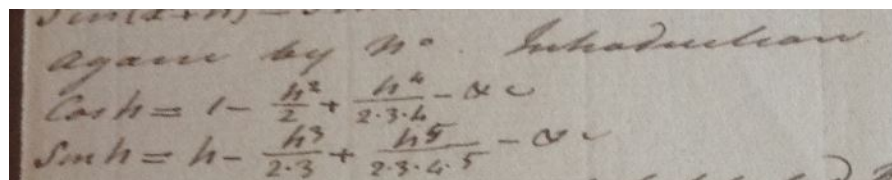 Sin(x+h) = Sin
again by No. Introduction
Cos h = 1 - h²/2 + h⁴/2·3·4 - &c
Sin h = h - h³/2·3 + h⁵/2·3·4·5 - &c